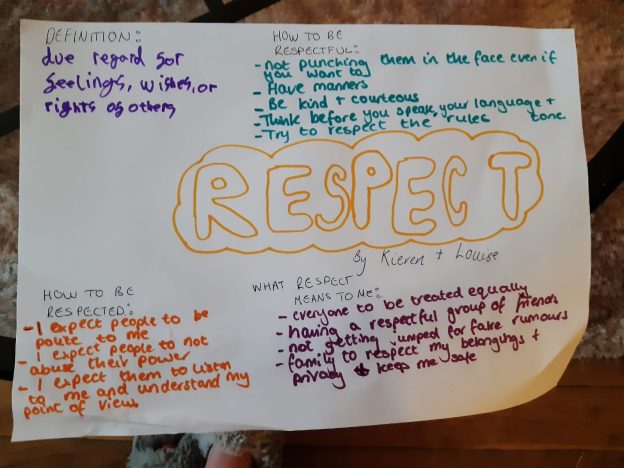 DEFINITION:
due regard for
feelings, wishes, or
rights of others
HOW TO BE
RESPECTFUL:
- not punching them in the face even if
you want to
- Have manners
- Be kind + courteous
- Think before you speak, your language +
tone
- Try to respect the rules
RESPECT
By Kieren + Louise
HOW TO BE
RESPECTED:
- I expect people to be
polite to me
- I expect people to not
abuse their power
- I expect them to listen
to me and understand my
point of view
WHAT RESPECT
MEANS TO ME:
- everyone to be treated equally
- having a respectful group of friends
- not getting jumped for fake rumours
- family to respect my belongings +
privacy + keep me safe